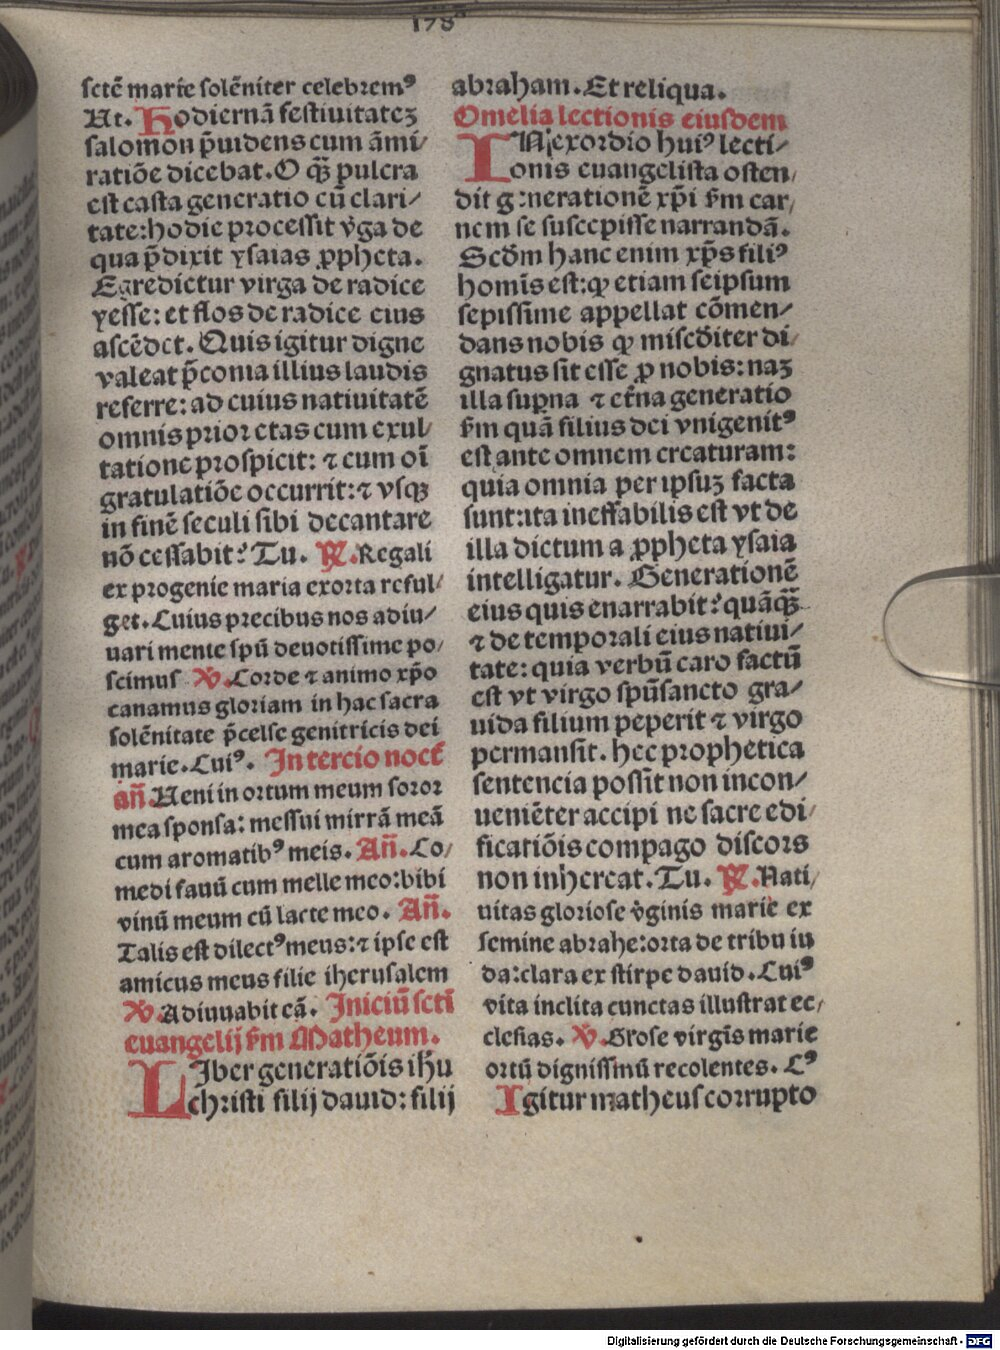 178
sctē marie solēniter celebremꝰ
Ut. Hodiernā festiuitatez
salomon p̄uidens cum āmi⸗
ratiōe dicebat. O qꝫ̄ pulcra
est casta generatio cū clari⸗
tate: hodie processit v̄ga de
qua p̄dixit ysaias ꝓpheta.
Egredietur virga de radice
yesse: et flos de radice eius
ascēdet. Quis igitur digne
valeat p̄conia illius laudis
referre: ad cuius natiuitatē
omnis prior etas cum exul⸗
tatione prospicit: ⁊ cum oī
gratulatiōe occurrit: ⁊ vsqꝫ
in finē seculi sibi decantare
nō cessabit? Tu. ℟. Regali
ex progenie maria exorta reful⸗
get. Cuius precibus nos adiu⸗
uari mente spū deuotissime po⸗
scimus ℣. Corde ⁊ animo xp̄o
canamus gloriam in hac sacra
solēnitate p̄celse genitricis dei
marie. Cuiꝰ. In tercio noct̄
an̄. Ueni in ortum meum soror
mea sponsa: messui mirrā meā
cum aromatibꝰ meis. An̄. Co⸗
medi fauū cum melle meo: bibi
vinū meum cū lacte meo. An̄.
Talis est dilectꝰ meus: ⁊ ipse est
amicus meus filie iherusalem
℣. Adiuuabit eā. Iniciū sctī
euangelij s̄m Matheum.
LIber generatiōis ihū
christi filij dauid: filij
abraham. Et reliqua.
Omelia lectionis eiusdem
IN exordio huiꝰ lecti⸗
onis euangelista osten⸗
dit generationē xp̄i s̄m car⸗
nem se suscepisse narrandā.
Scd̄m hanc enim xp̄s filiꝰ
homīs est: ꝙ etiam seipsum
sepissime appellat cōmen⸗
dans nobis ꝙ misēditer di⸗
gnatus sit esse ꝓ nobis: naꝫ
illa supna ⁊ et̄na generatio
s̄m quā filius dei vnigenitꝰ
est ante omnem creaturam:
quia omnia per ipsuꝫ facta
sunt: ita ineffabilis est vt de
illa dictum a ꝓpheta ysaia
intelligatur. Generationē
eius quis enarrabit? quāqꝫ̄
⁊ de temporali eius natiui⸗
tate: quia verbū caro factū
est vt virgo spūsancto gra⸗
uida filium peperit ⁊ virgo
permansit. hec prophetica
sentencia possit non incon⸗
ueniēter accipi ne sacre edi⸗
ficatiōis compago discors
non inhereat. Tu. ℟. Nati⸗
uitas gloriose v̄ginis marie ex
semine abrahe: orta de tribu iu
da: clara ex stirpe dauid. Cuiꝰ
vita inclita cunctas illustrat ec⸗
clesias. ℣. Glose virgīs marie
ortū dignissimū recolentes. Cꝰ
Igitur matheus corrupto
Digitalisierung gefördert durch die Deutsche Forschungsgemeinschaft - DFG